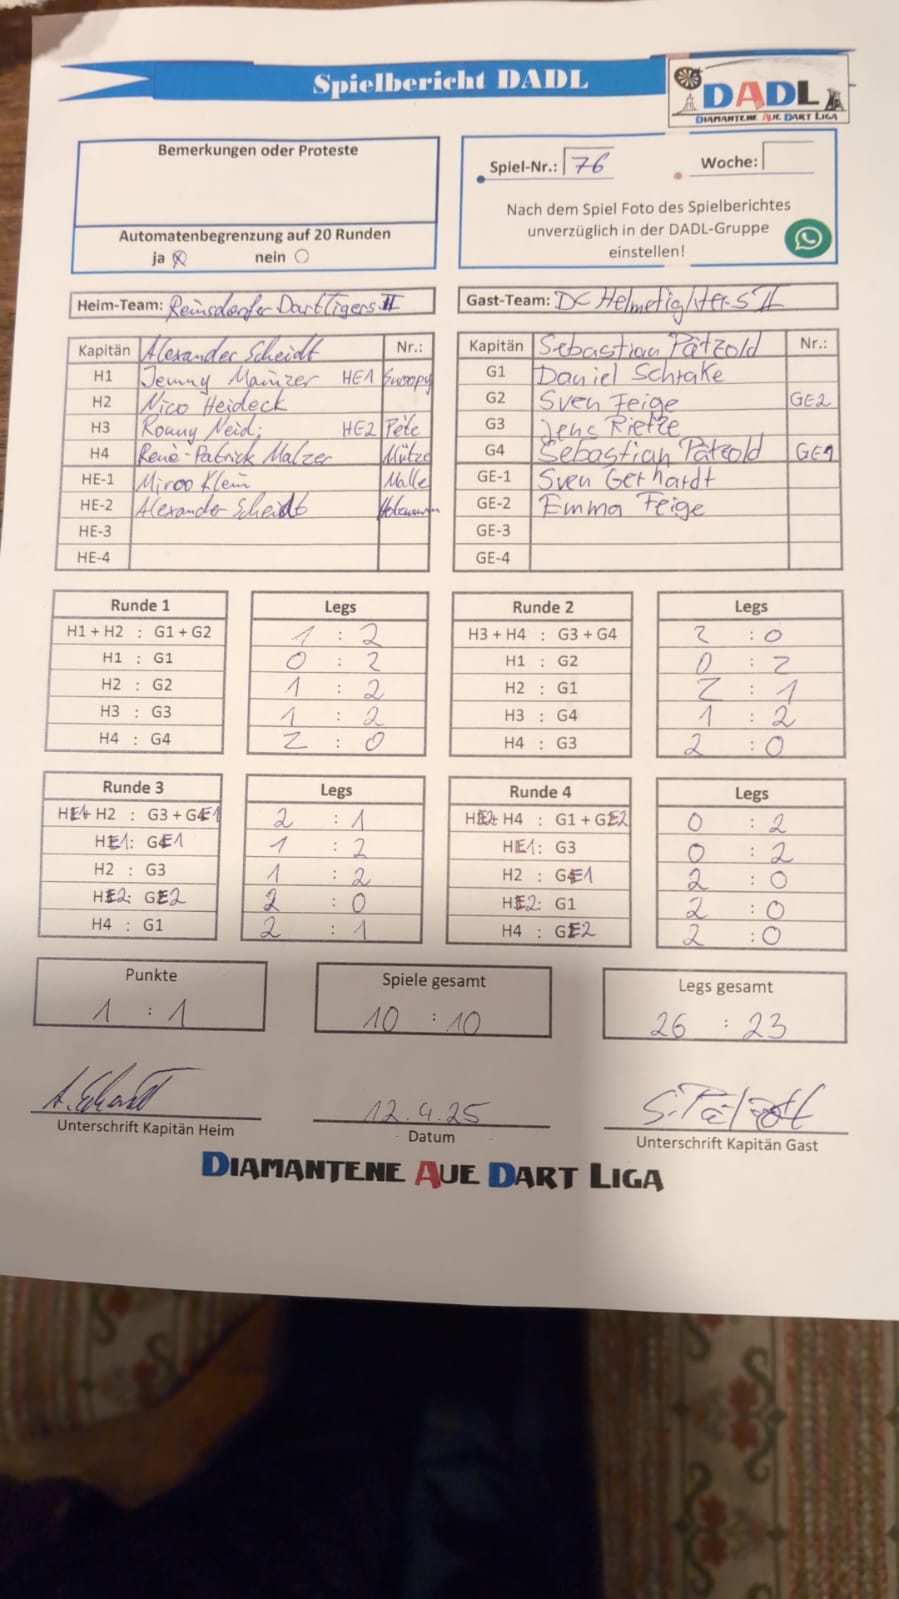 Spielbericht DADL
DADL
DIAMANTENE AUE DART LIGA
Bemerkungen oder Proteste
Automatenbegrenzung auf 20 Runden
ja nein
Spiel-Nr.: 76 Woche:
Nach dem Spiel Foto des Spielberichtes
unverzüglich in der DADL-Gruppe
einstellen!
Heim-Team: Reinsdorfer DartTigers II
Gast-Team: DC Helmefighters II
Kapitän Alexander Scheidt Nr.:
H1 Jenny Mainzer HE1 Snoopy
H2 Nico Heideck
H3 Ronny Neid. HE2 Pete
H4 Renè-Patrick Malzer Mütze
HE-1 Mirco Klein Nalle
HE-2 Alexander Scheidt
HE-3
HE-4
Kapitän Sebastian Pätzold Nr.:
G1 Daniel Schrake
G2 Sven Feige GE2
G3 Jens Rietze
G4 Sebastian Pätzold GE1
GE-1 Sven Gerhardt
GE-2 Emma Feige
GE-3
GE-4
Runde 1 Legs
H1 + H2 : G1 + G2 1 : 2
H1 : G1 0 : 2
H2 : G2 1 : 2
H3 : G3 1 : 2
H4 : G4 2 : 0
Runde 2 Legs
H3 + H4 : G3 + G4 2 : 0
H1 : G2 0 : 2
H2 : G1 2 : 1
H3 : G4 1 : 2
H4 : G3 2 : 0
Runde 3 Legs
HE1+ H2 : G3 + GE1 2 : 1
HE1: GE1 1 : 2
H2 : G3 1 : 2
HE2: GE2 2 : 0
H4 : G1 2 : 1
Runde 4 Legs
HE2+ H4 : G1 + GE2 0 : 2
HE1: G3 0 : 2
H2 : GE1 2 : 0
HE2: G1 2 : 0
H4 : GE2 2 : 0
Punkte
1 : 1
Spiele gesamt
10 : 10
Legs gesamt
26 : 23
A. Scheidt
Unterschrift Kapitän Heim
12.4.25
Datum
S. Pätzold
Unterschrift Kapitän Gast
DIAMANTENE AUE DART LIGA